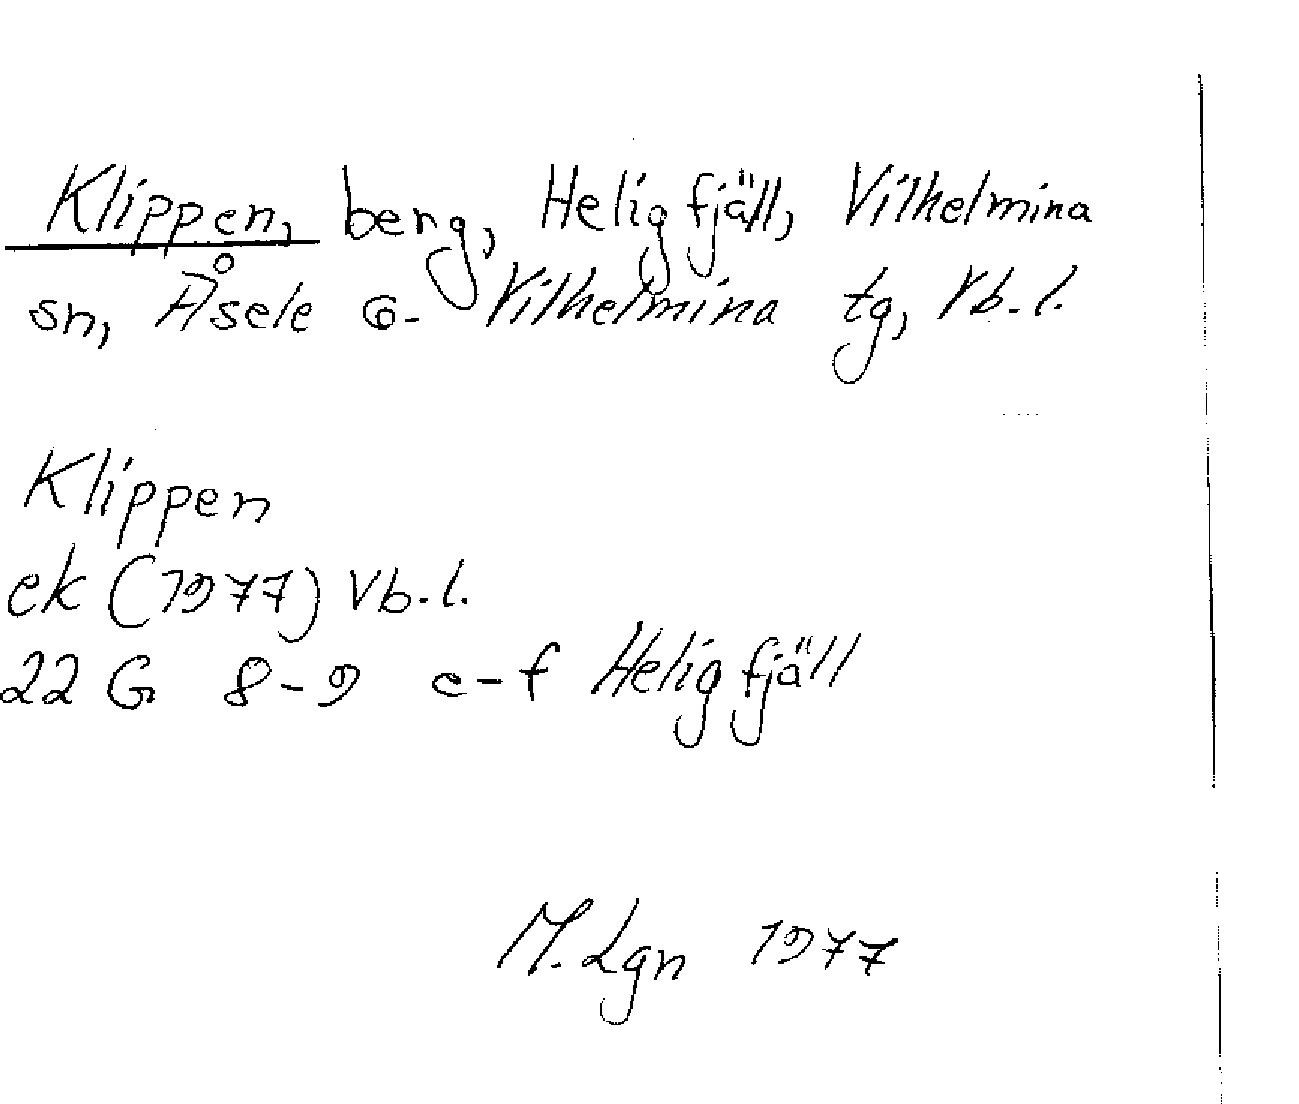 Klippen, berg, Heligfjäll, Vilhelmina
sn, Åsele o. Vilhelmina tg, Vb.l.
Klippen
ek (1977) Vb.l.
22 G 8-9 e-f Heligfjäll
M. Lgn 1977